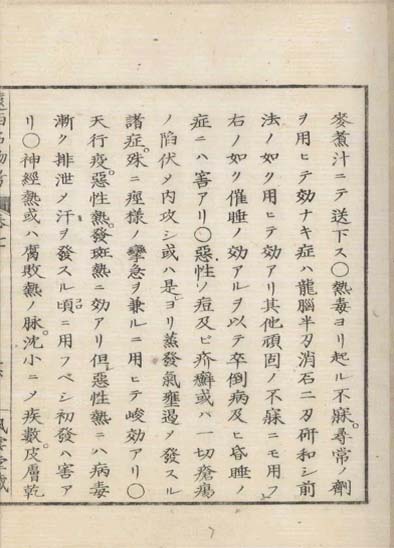 麥煮汁ニテ送下ス〇熱毒ヨリ起ル不寐。尋常ノ劑
ヲ用ヒテ効ナキ症ハ龍腦半刃消石二刃研和シ前
法ノ如ク用ヒテ効アリ其他頑固ノ不寐ニモ用フ
右ノ如ク催睡ノ効アルヲ以テ卒倒病及ヒ昏睡ノ
症ニハ害アリ〇惡性ノ痘及ヒ疥癬或ハ一切瘡瘍
ノ陷伏メ内攻シ或ハ是ヨリ蒸發氣壅遏メ發スル
諸症。殊ニ痙様ノ攣急ヲ兼ルニ用ヒテ峻効アリ〇
天行疫。惡性熱。發斑熱ニ効アリ但惡性熱ニハ病毒
漸ク排泄メ汗ヲ發スル頃ニ用フベシ初發ハ害ア
リ〇神經熱或ハ腐敗熱ノ脉。沈小ニメ疾數皮層乾
遠西名物考 卷七
風雲堂藏